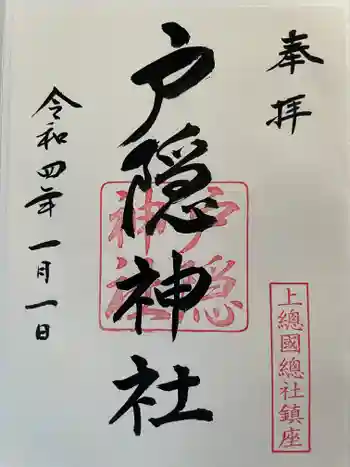 奉拝
上總國總社鎮座
戸隠神社
戸隠
神社
令和四年一月一日